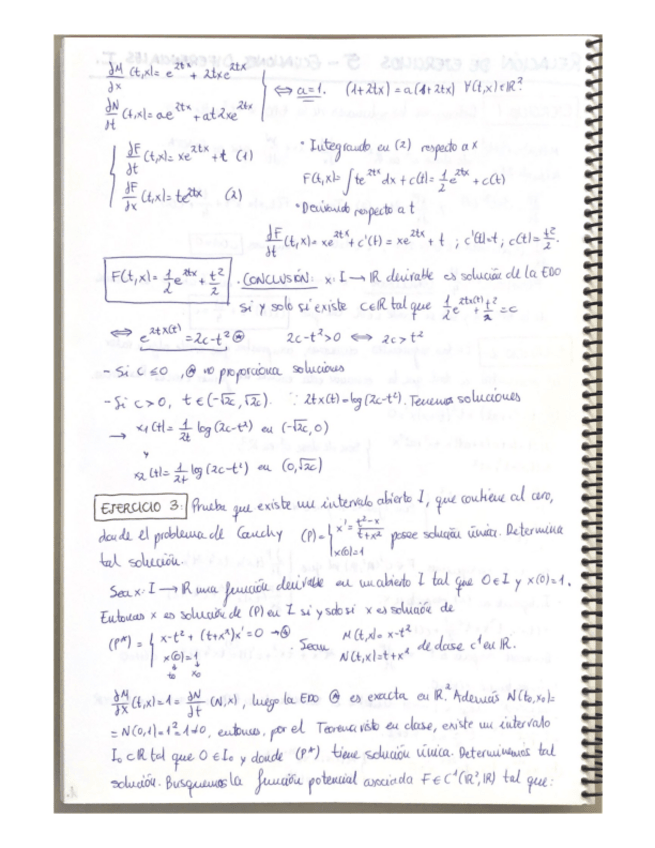 ∂M/∂x (t,x) = e^{2tx} + 2txe^{2tx}
∂N/∂t (t,x) = ae^{2tx} + at2xe^{2tx}
⟺ a=1. (1+2tx) = a(1+2tx) ∀(t,x)∈ℝ²
∂F/∂t (t,x) = xe^{2tx} + t (1)
∂F/∂x (t,x) = te^{2tx} (2)
• Integrando en (2) respecto a x
F(t,x) = ∫te^{2tx} dx + c(t) = 1/2 e^{2tx} + c(t)
• Derivando respecto a t
∂F/∂t (t,x) = xe^{2tx} + c'(t) = xe^{2tx} + t ; c'(t)=t ; c(t) = t²/2.
F(t,x) = 1/2 e^{2tx} + t²/2 . CONCLUSIÓN: x: I → ℝ derivable es solución de la EDO
si y solo si existe c∈ℝ tal que 1/2 e^{2tx(t)} + t²/2 = c
⟺ e^{2tx(t)} = 2c-t² 2c-t²>0 ⟺ 2c>t²
- Si c ≤ 0, no proporciona soluciones
- Si c > 0, t ∈ (-√2c, √2c). ∵ 2tx(t) = log(2c-t²). Tenemos soluciones
→ x₁(t) = 1/2t log(2c-t²) en (-√2c, 0)
y
x₂(t) = 1/2t log(2c-t²) en (0, √2c)
EJERCICIO 3: Prueba que existe un intervalo abierto I, que contiene al cero,
donde el problema de Cauchy (P) = { x' = t²-x / t+x² posee solución única. Determina
x(0)=1
tal solución.
Sea x: I → ℝ una función derivable en un abierto I tal que 0∈I y x(0)=1.
Entonces x es solución de (P) en I si y solo si x es solución de
(P*) = { x-t² + (t+x²)x' = 0 → . Sean M(t,x) = x-t² de clase C¹ en ℝ.
x(0) = 1 N(t,x) = t+x²
t₀ x₀
∂M/∂x (t,x) = 1 = ∂N/∂t (N,x), luego la EDO es exacta en ℝ². Además N(t₀,x₀)=
= N(0,1) = 1² = 1≠0, entonces, por el Teorema visto en clase, existe un intervalo
I₀ ⊂ ℝ tal que 0 ∈ I₀ y donde (P*) tiene solución única. Determinemos tal
solución. Busquemos la función potencial asociada F ∈ C¹(ℝ²,ℝ) tal que: